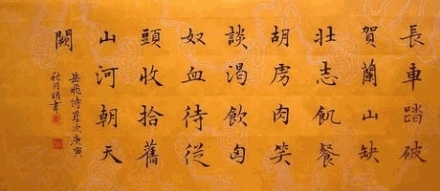 長車踏破
賀蘭山缺
壯志飢餐
胡虜肉笑
談渴飲匈
奴血待從
頭收拾舊
山河朝天
闕
岳飛詩歲次庚寅
秋月書